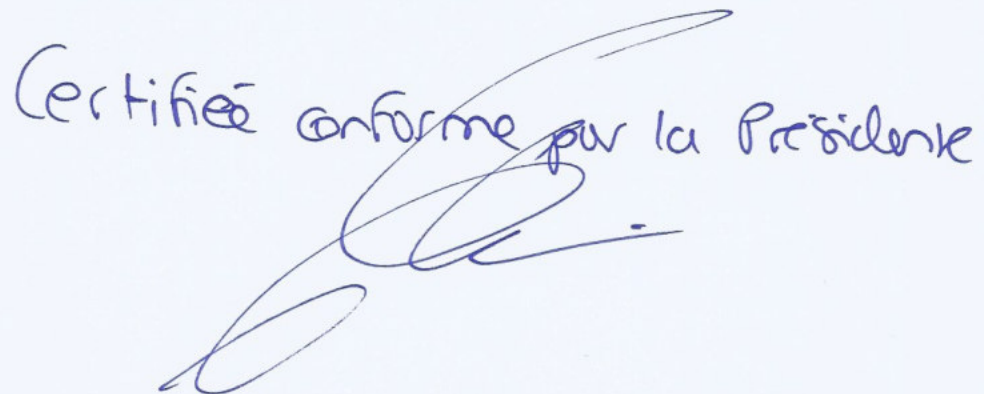 Certifiée conforme par la Présidente